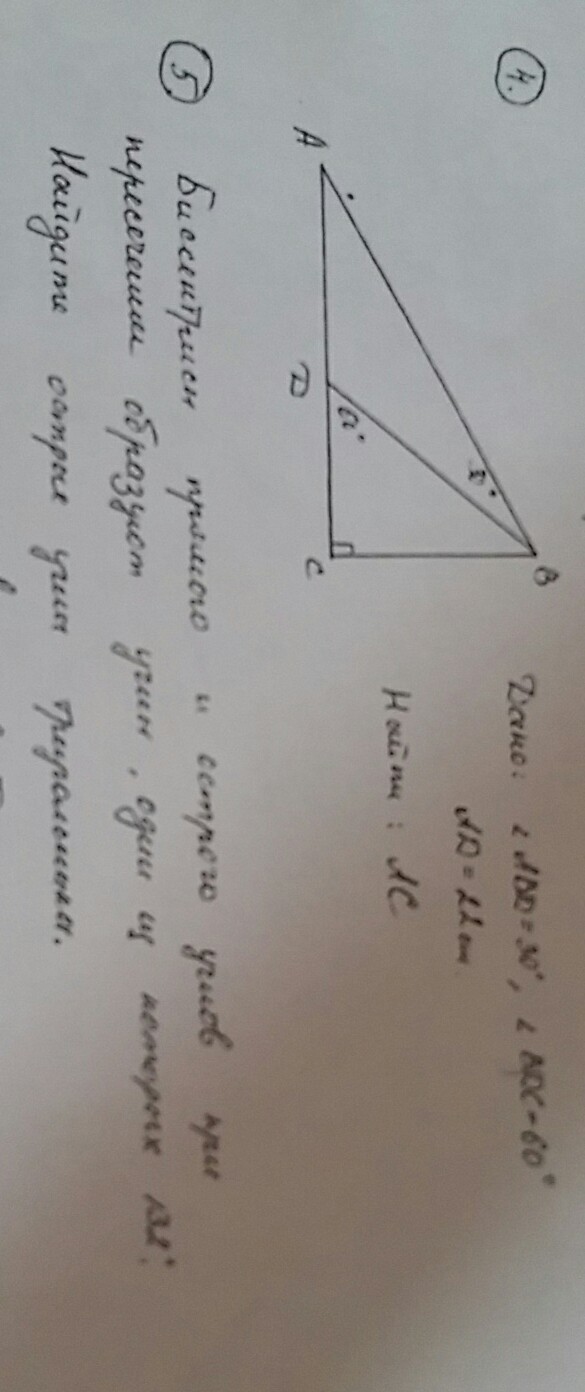 4.
Дано: ∠ ABD = 30°, ∠ BDC = 60°
AD = 22 cm.
Найти: AC
A
B
D
C
30°
60°
5. Биссектрисы прямого и острого углов при
пересечении образуют углы, один из которых
Найдите острые углы треугольника.